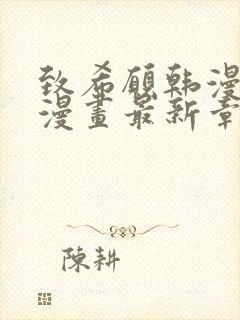 致希願韩漫
漫畫最新章
陳耕